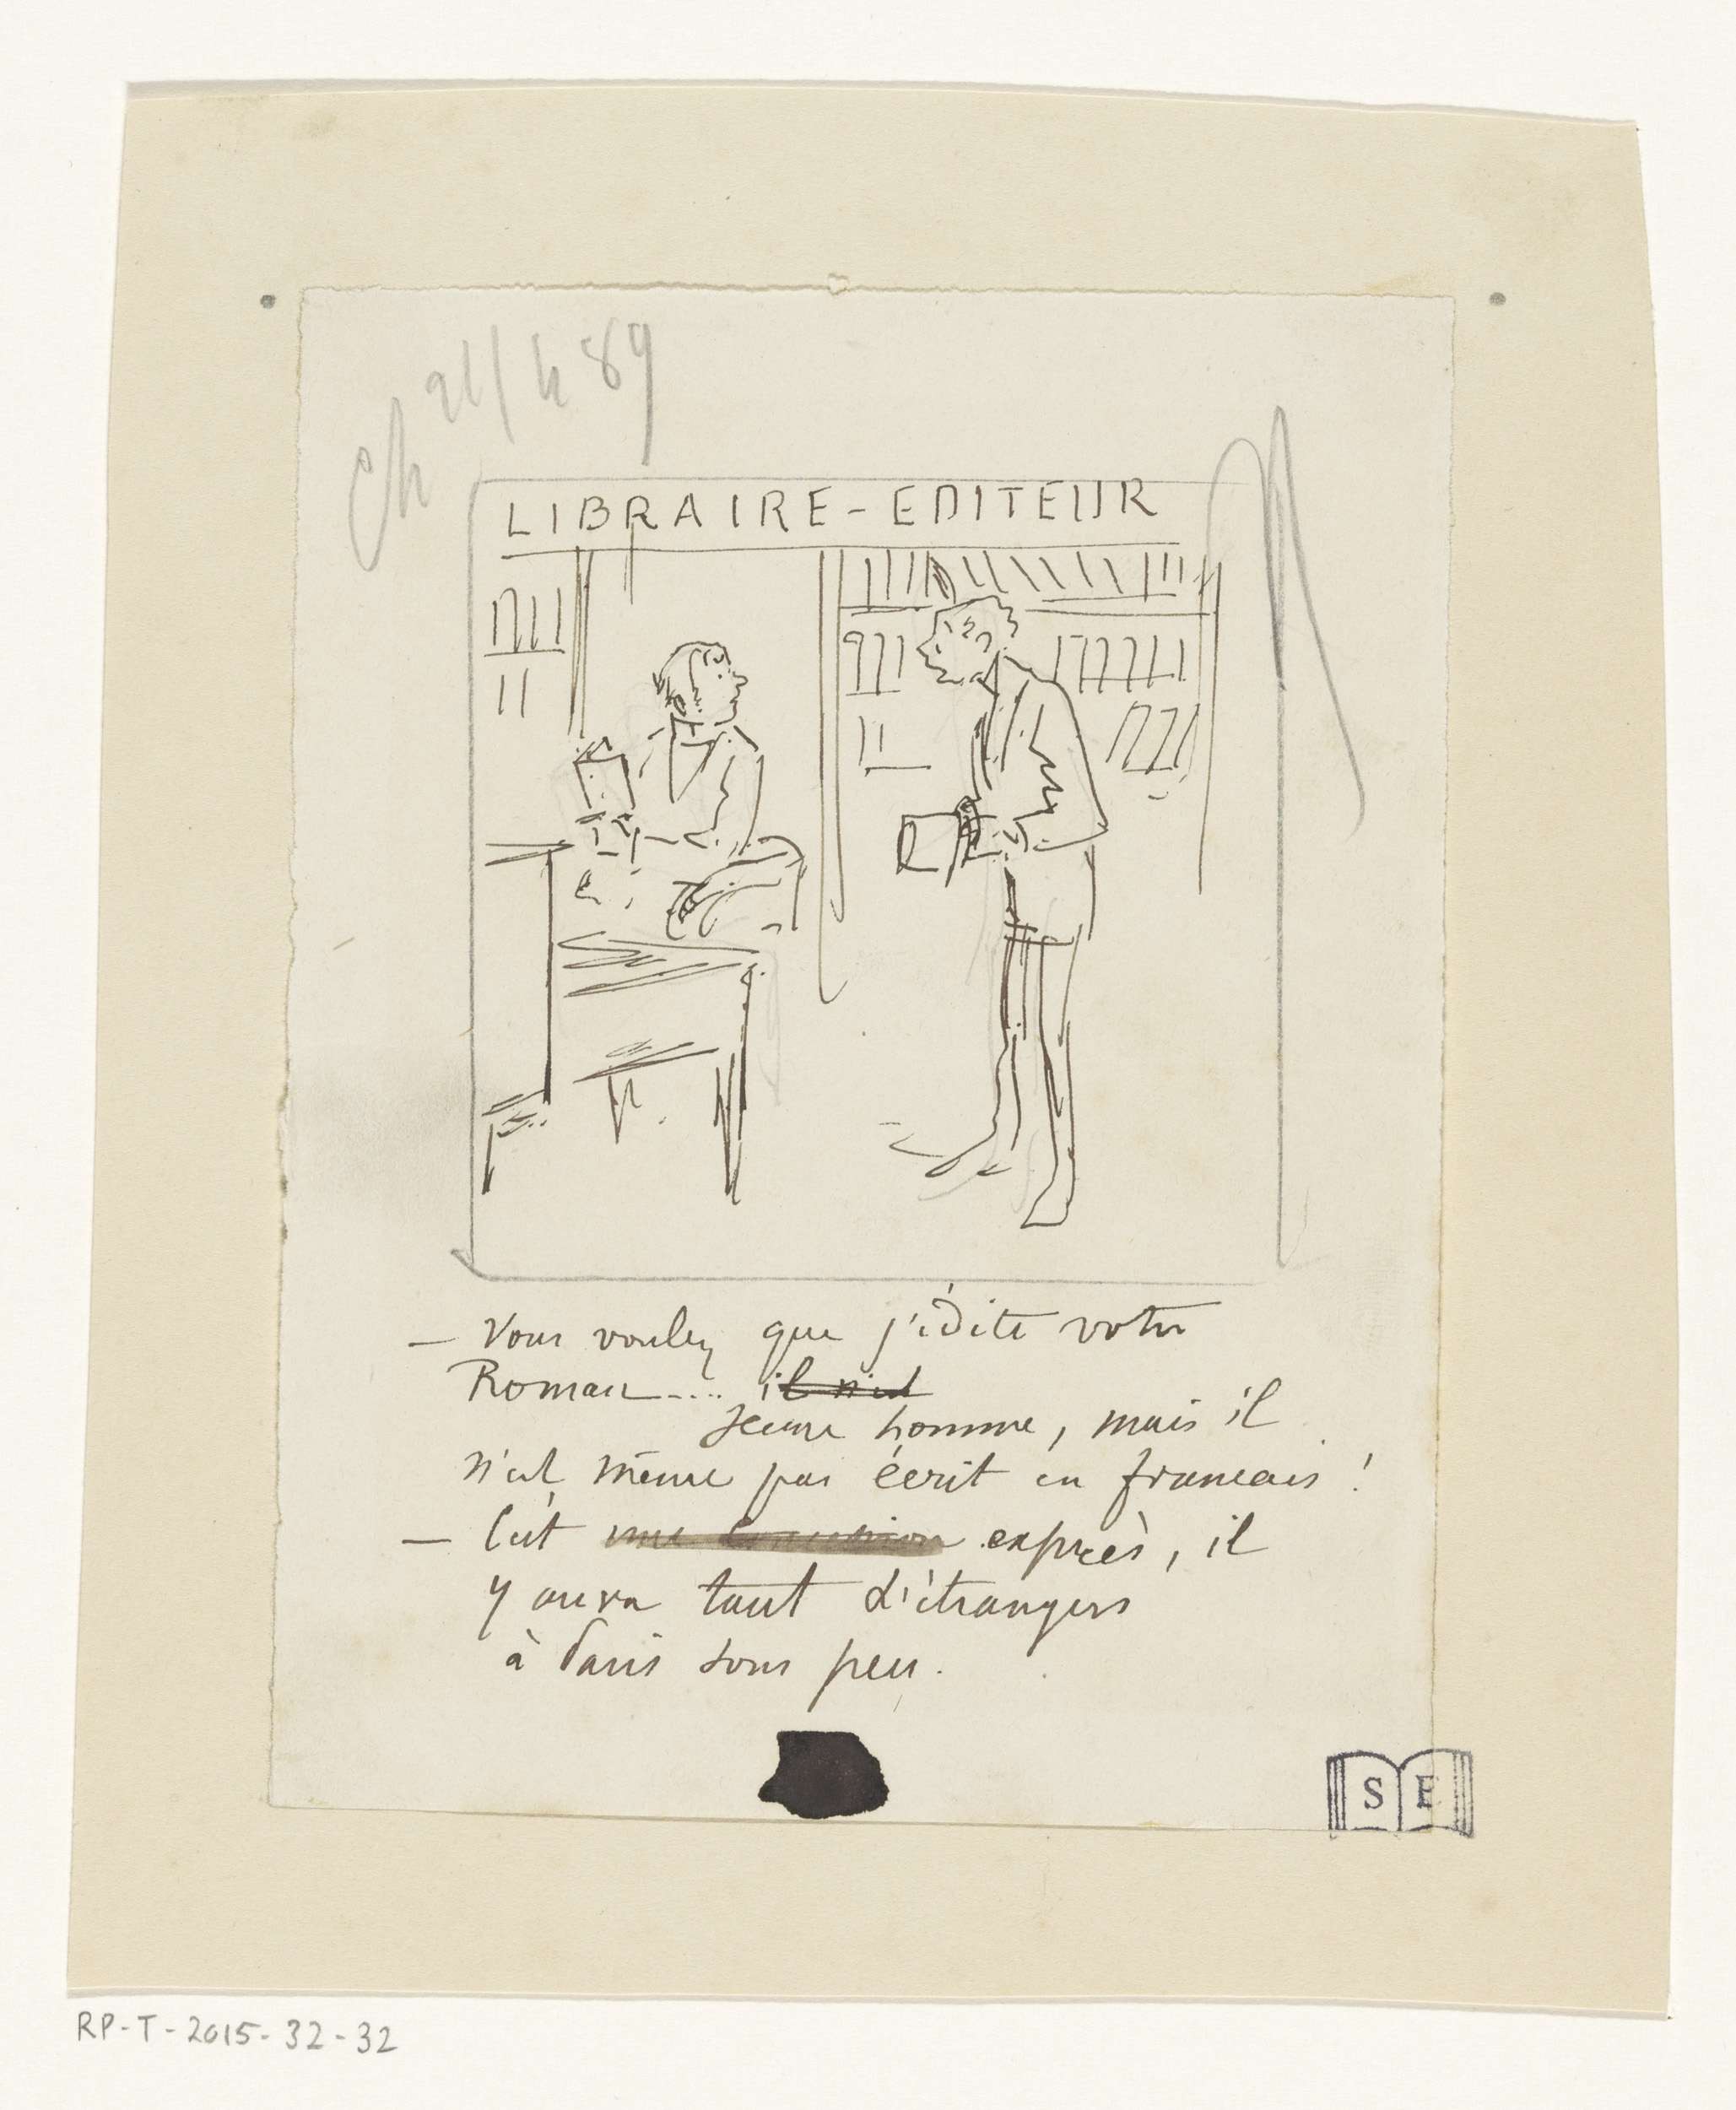 Ch 21/4 89
LIBRAIRE-EDITEUR
— Vous voulez que j'édite votre
Roman.... il n'est
Jeune homme, mais il
n'est même pas écrit en francais !
— C'est une exprès, il
y aura tant d'étrangers
à Paris sous peu.
S E
RP-T-2015-32-32